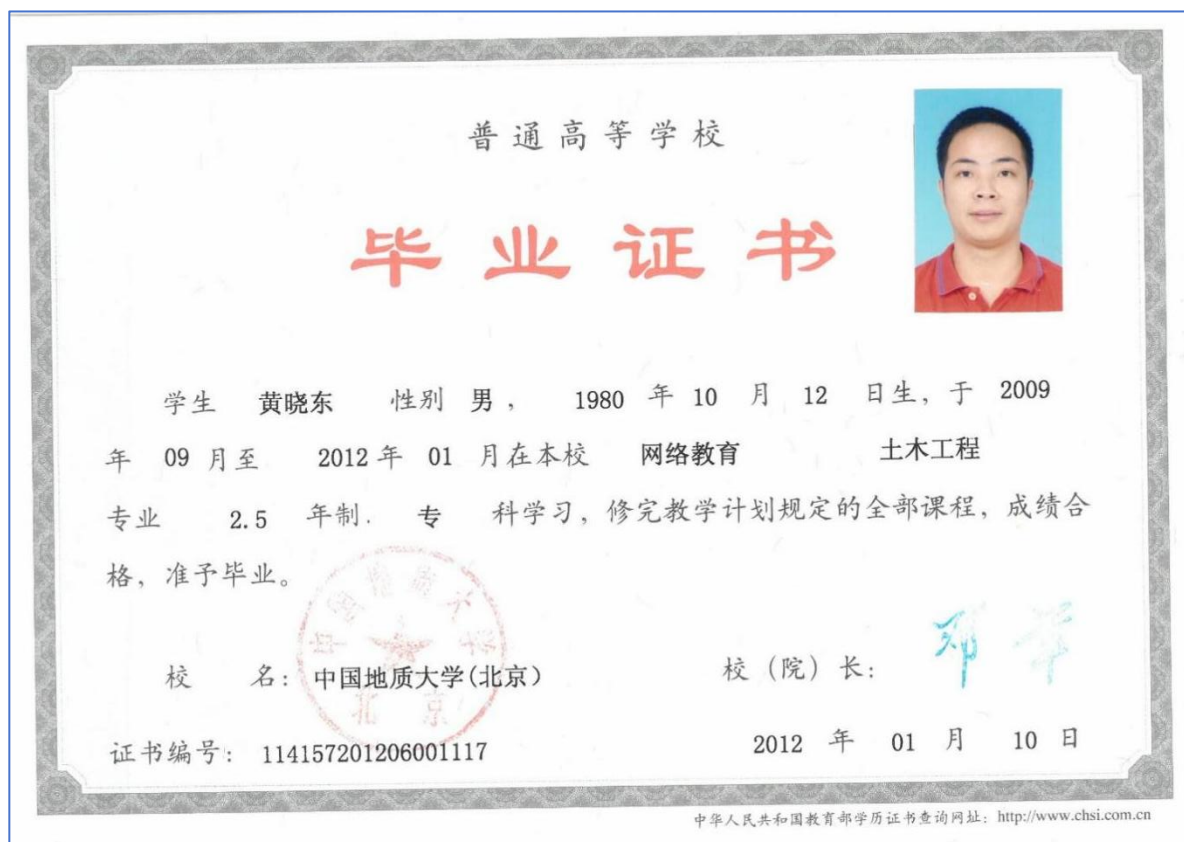 普通高等学校
毕业证书
学生 黄晓东 性别 男， 1980 年 10 月 12 日生，于 2009
年 09 月至 2012 年 01 月在本校 网络教育 土木工程
专业 2.5 年制. 专 科学习，修完教学计划规定的全部课程，成绩合
格，准予毕业。
中国地质大学
北京
校 名：中国地质大学(北京)
校（院）长：
证书编号：114157201206001117
2012 年 01 月 10 日
中华人民共和国教育部学历证书查询网址：http://www.chsi.com.cn